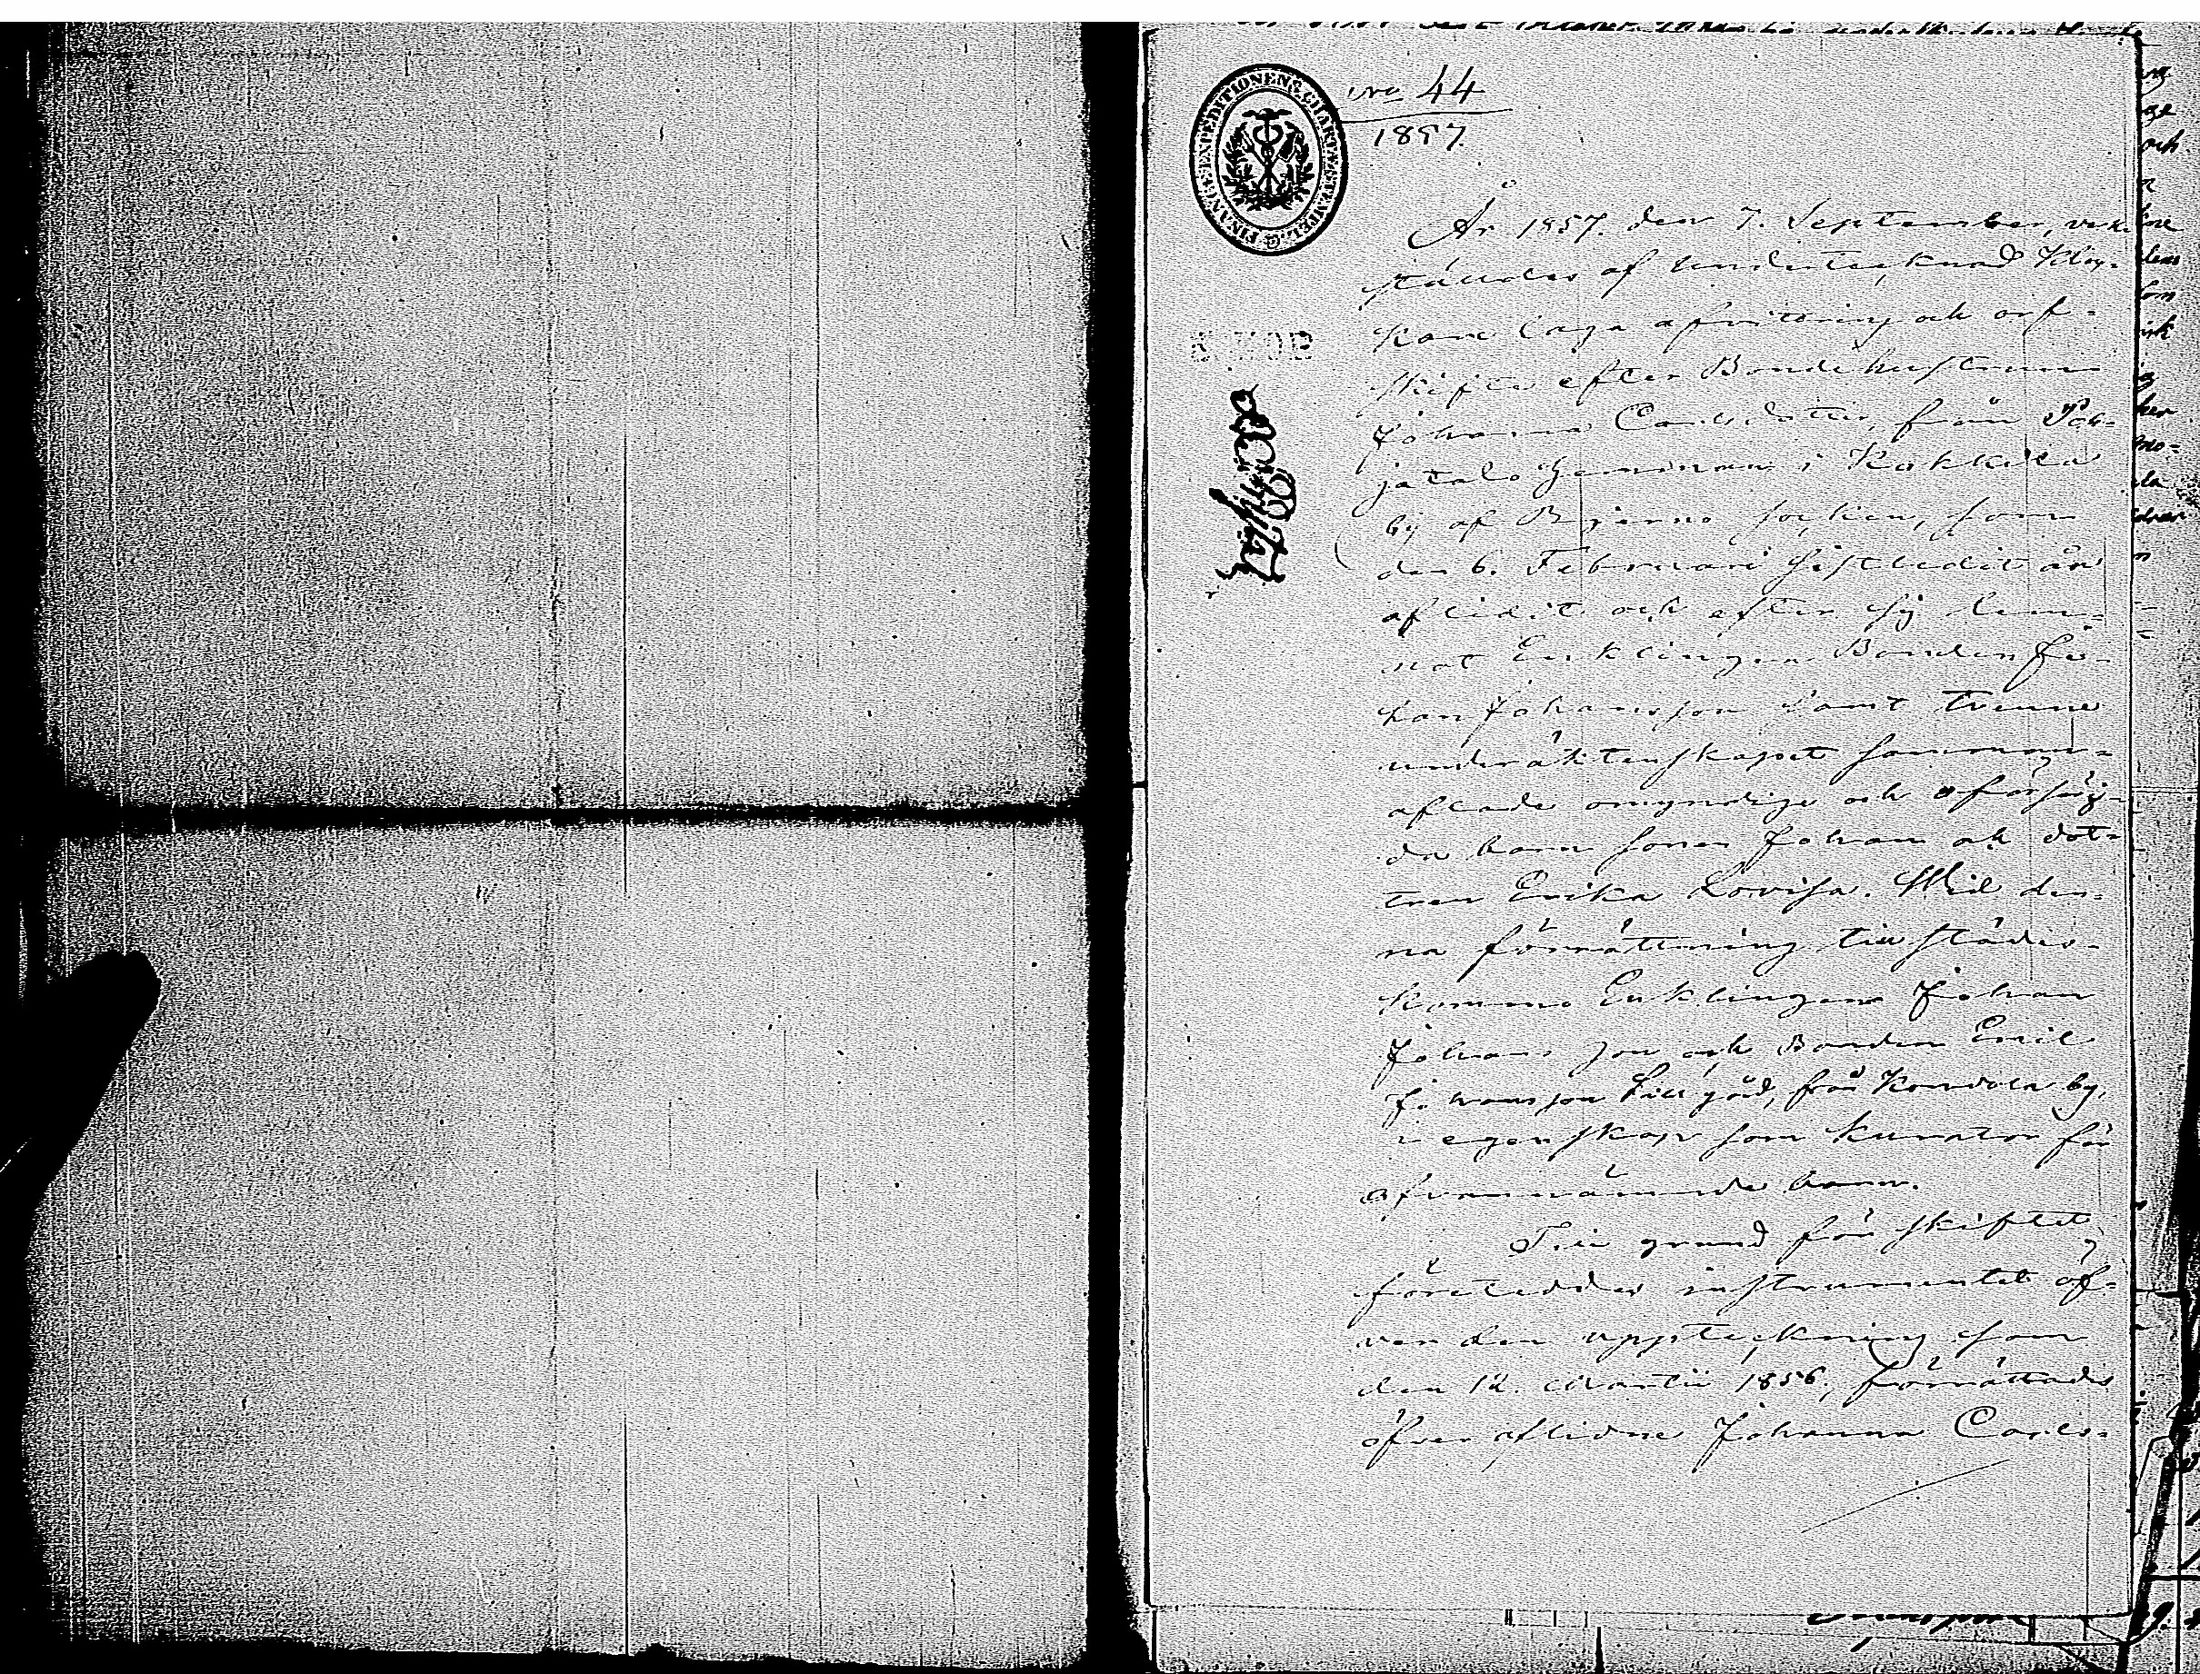 FINANS EXPEDITIONEN CHARTÆ STEMPEL
No 44
1857.
År 1857. den 7. September, verk-
ställdes af undertecknad Kloc-
kare laga afvittring och arf-
skifte efter Bondehustrun
Johanna Carlsdotter, från Poh-
jatalo hemman i Kokkila
by af Bjerno socken, som
den 6. Februari sistledit år
aflidit och efter sig lem-
nat Enklingen Bonden Jo-
han Johansson samt tvenne
under äktenskapet samman-
aflade omyndige och oförsörg-
da barn sonen Johan och dot-
tren Erika Lovisa. Wid den-
na förrättning tillstädes-
kommo Enklingen Johan
Johansson och Bonden Emil
Johansson Lillgård, från by,
i egenskap som kurator för
ofvannämnde barn.
Till grund för skiftet
företeddes instrumentet öf-
ver den uppteckning som
den 12. Martii 1856, förrättades
öfver aflidne Johanna Carls-